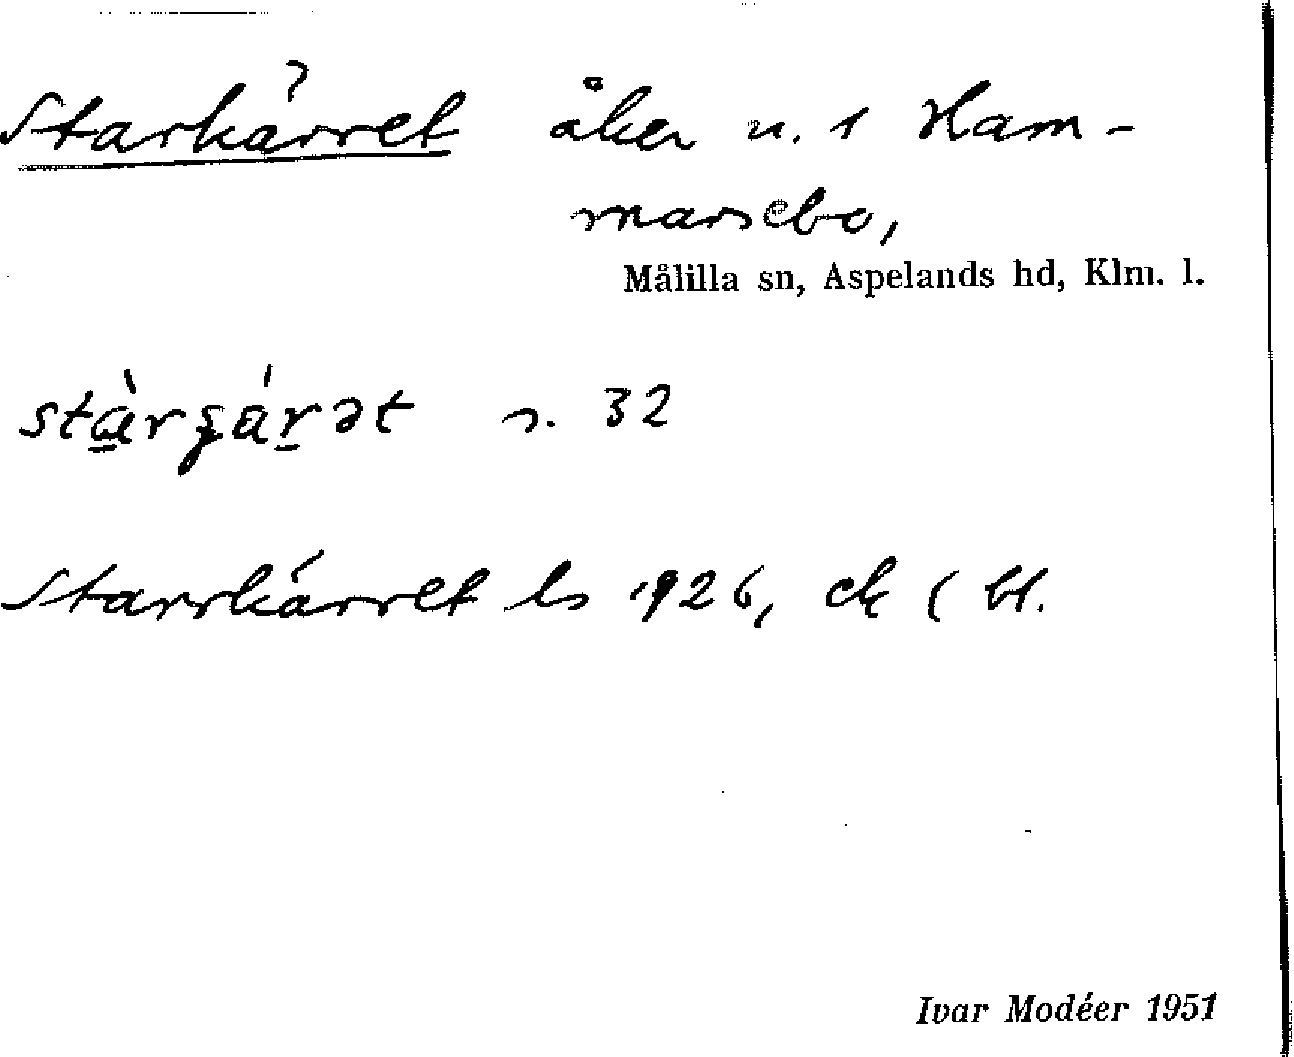 Starkärret åker n. 1 Ham-
marsebo,
Målilla sn, Aspelands hd, Klm. l.
s. 32
Starrkärret ls 1926, ek ( bl.
Ivar Modéer 1951